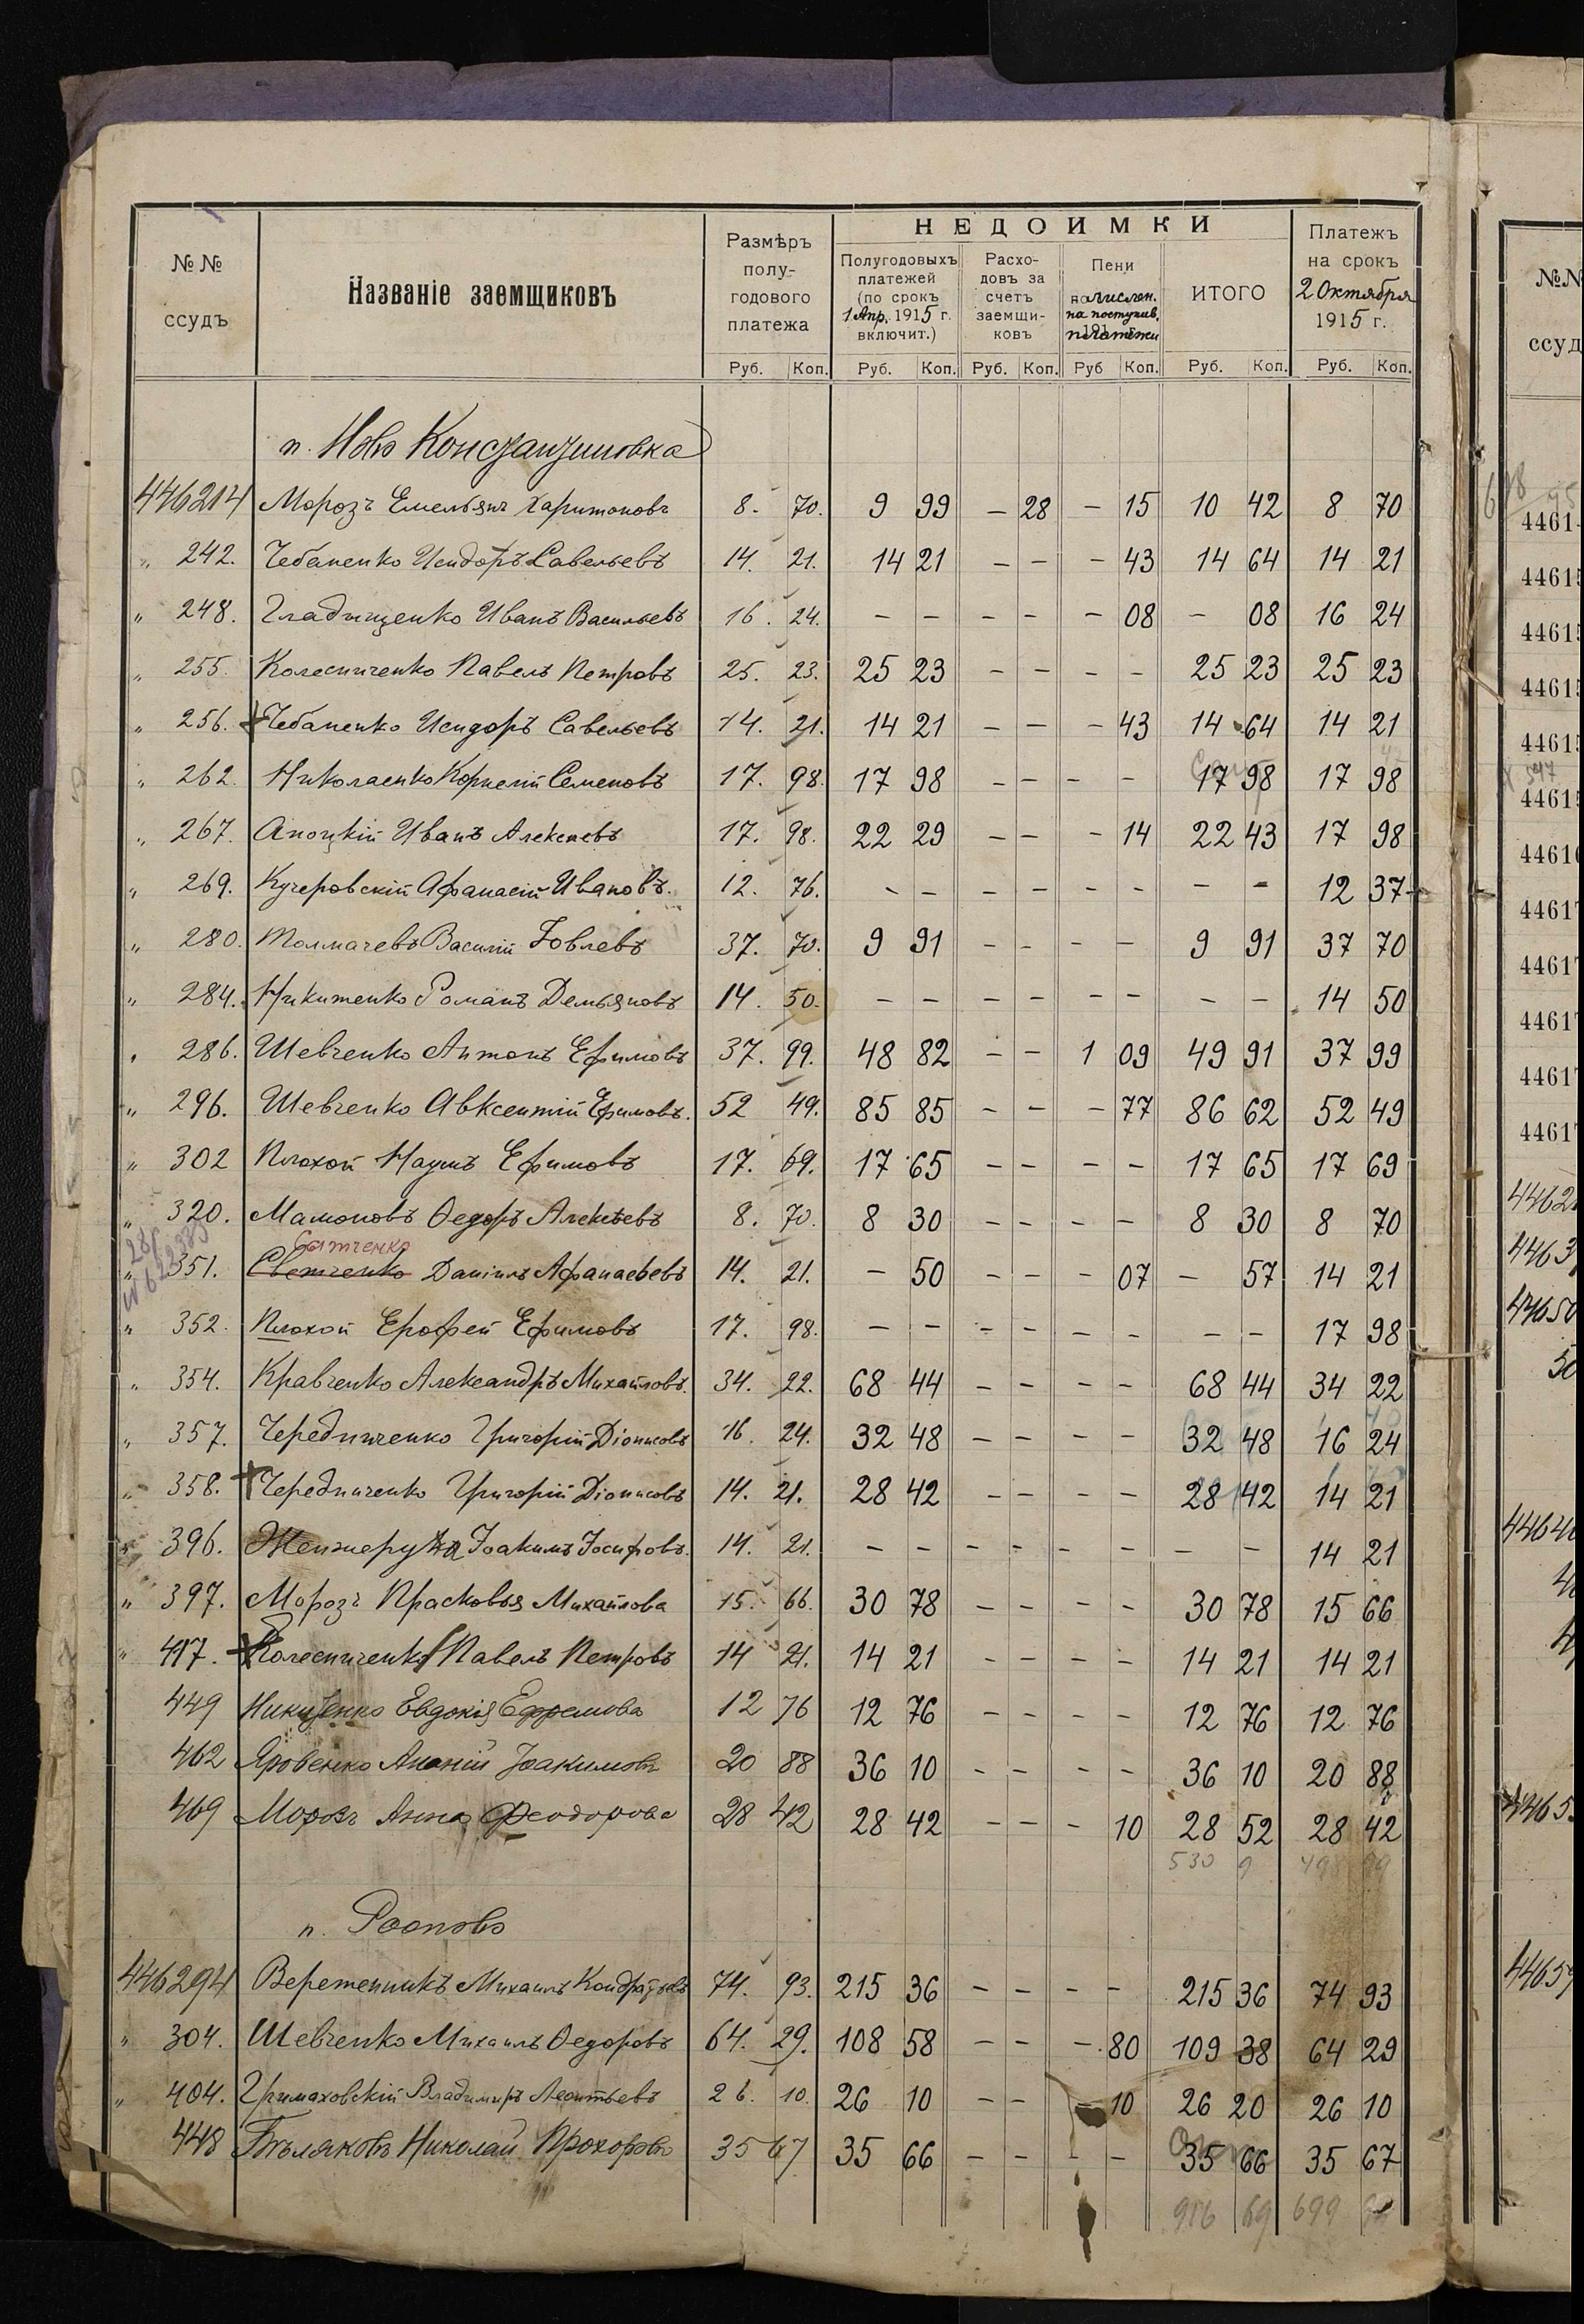 №№ ссудъ
Названіе заемщиковъ
Размѣръ полу-годового платежа
НЕДОИМКИ
Полугодовыхъ платежей (по срокъ 1 Апр. 1915 г. включит.)
Расхо-довъ за счетъ заемщи-ковъ
Пени начислен. на поступив. платежи
ИТОГО
Платежъ на срокъ 2 Октября 1915 г.
Руб. Коп. Руб. Коп. Руб. Коп. Руб Коп. Руб. Коп. Руб. Коп.
п. Ново Константиновка
446214 Морозъ Емельянъ Харитоновъ 8. 70. 9 99 – 28 – 15 10 42 8 70
„ 242. Чебаненко Исидоръ Савельевъ 14. 21. 14 21 – – – 43 14 64 14 21
„ 248. Гладищенко Иванъ Васильевъ 16. 24. – – – – – 08 – 08 16 24
„ 255. Колесниченко Павелъ Петровъ 25. 23. 25 23 – – – – 25 23 25 23
„ 256. Чебаненко Исидоръ Савельевъ 14. 21. 14 21 – – – 43 14 64 14 21
„ 262. Николаенко Корнелій Семеновъ 17. 98. 17 98 – – – – 17 98 17 98
„ 267. Аноцкій Иванъ Алексеевъ 17. 98. 22 29 – – – 14 22 43 17 98
„ 269. Кучеровскій Афанасій Ивановъ. 12. 76. – – – – – – – – 12 37
„ 280. Толмачевъ Василій Іовлевъ 37. 70. 9 91 – – – – 9 91 37 70
„ 284. Никитенко Романъ Демьяновъ 14. 50. – – – – – – – – 14 50
„ 286. Шевченко Антонъ Ефимовъ 37. 99. 48 82 – – 1 09 49 91 37 99
„ 296. Шевченко Авксентій Ефимовъ. 52 49. 85 85 – – – 77 86 62 52 49
„ 302 Плохой Наумъ Ефимовъ 17. 69. 17 65 – – – – 17 65 17 69
„ 320. Мамоновъ Ѳедоръ Алексѣевъ 8. 70. 8 30 – – – – 8 30 8 70
„ 351. Светченко Даніилъ Афанасьевъ 14. 21. – 50 – – – 07 – 57 14 21
„ 352. Плохой Ерофей Ефимовъ 17. 98. – – – – – – – – 17 98
„ 354. Кравченко Александръ Михайловъ. 34. 22. 68 44 – – – – 68 44 34 22
„ 357. Чередниченко Григорій Діонисовъ 16. 24. 32 48 – – – – 32 48 16 24
„ 358. Чередниченко Григорій Діонисовъ 14. 21. 28 42 – – – – 28 42 14 21
„ 396. Женжеруха Іоакимъ Іосифовъ. 14. 21. – – – – – – – – 14 21
„ 397. Морозъ Прасковья Михайлова 15. 66. 30 78 – – – – 30 78 15 66
„ 417. Колесниченко Павелъ Петровъ 14 21. 14 21 – – – – 14 21 14 21
449 Никитенко Евдокія Ефремова 12 76 12 76 – – – – 12 76 12 76
462 Яровенко Ананій Іоакимовъ 20 88 36 10 – – – – 36 10 20 88
469 Морозъ Анна Феодорова 28 42 28 42 – – – 10 28 52 28 42
530 9
п. Роопово
446294 Веретенникъ Михаилъ Кондратьевъ 74. 93. 215 36 – – – – 215 36 74 93
„ 304. Шевченко Михаилъ Ѳедоровъ 64. 29. 108 58 – – – 80 109 38 64 29
„ 404. Гримаховскій Владимиръ Леонтьевъ 26. 10. 26 10 – – – 10 26 20 26 10
448 Бѣляковъ Николай Прохоровъ 35 67 35 66 – – – – 35 66 35 67
916 69 699